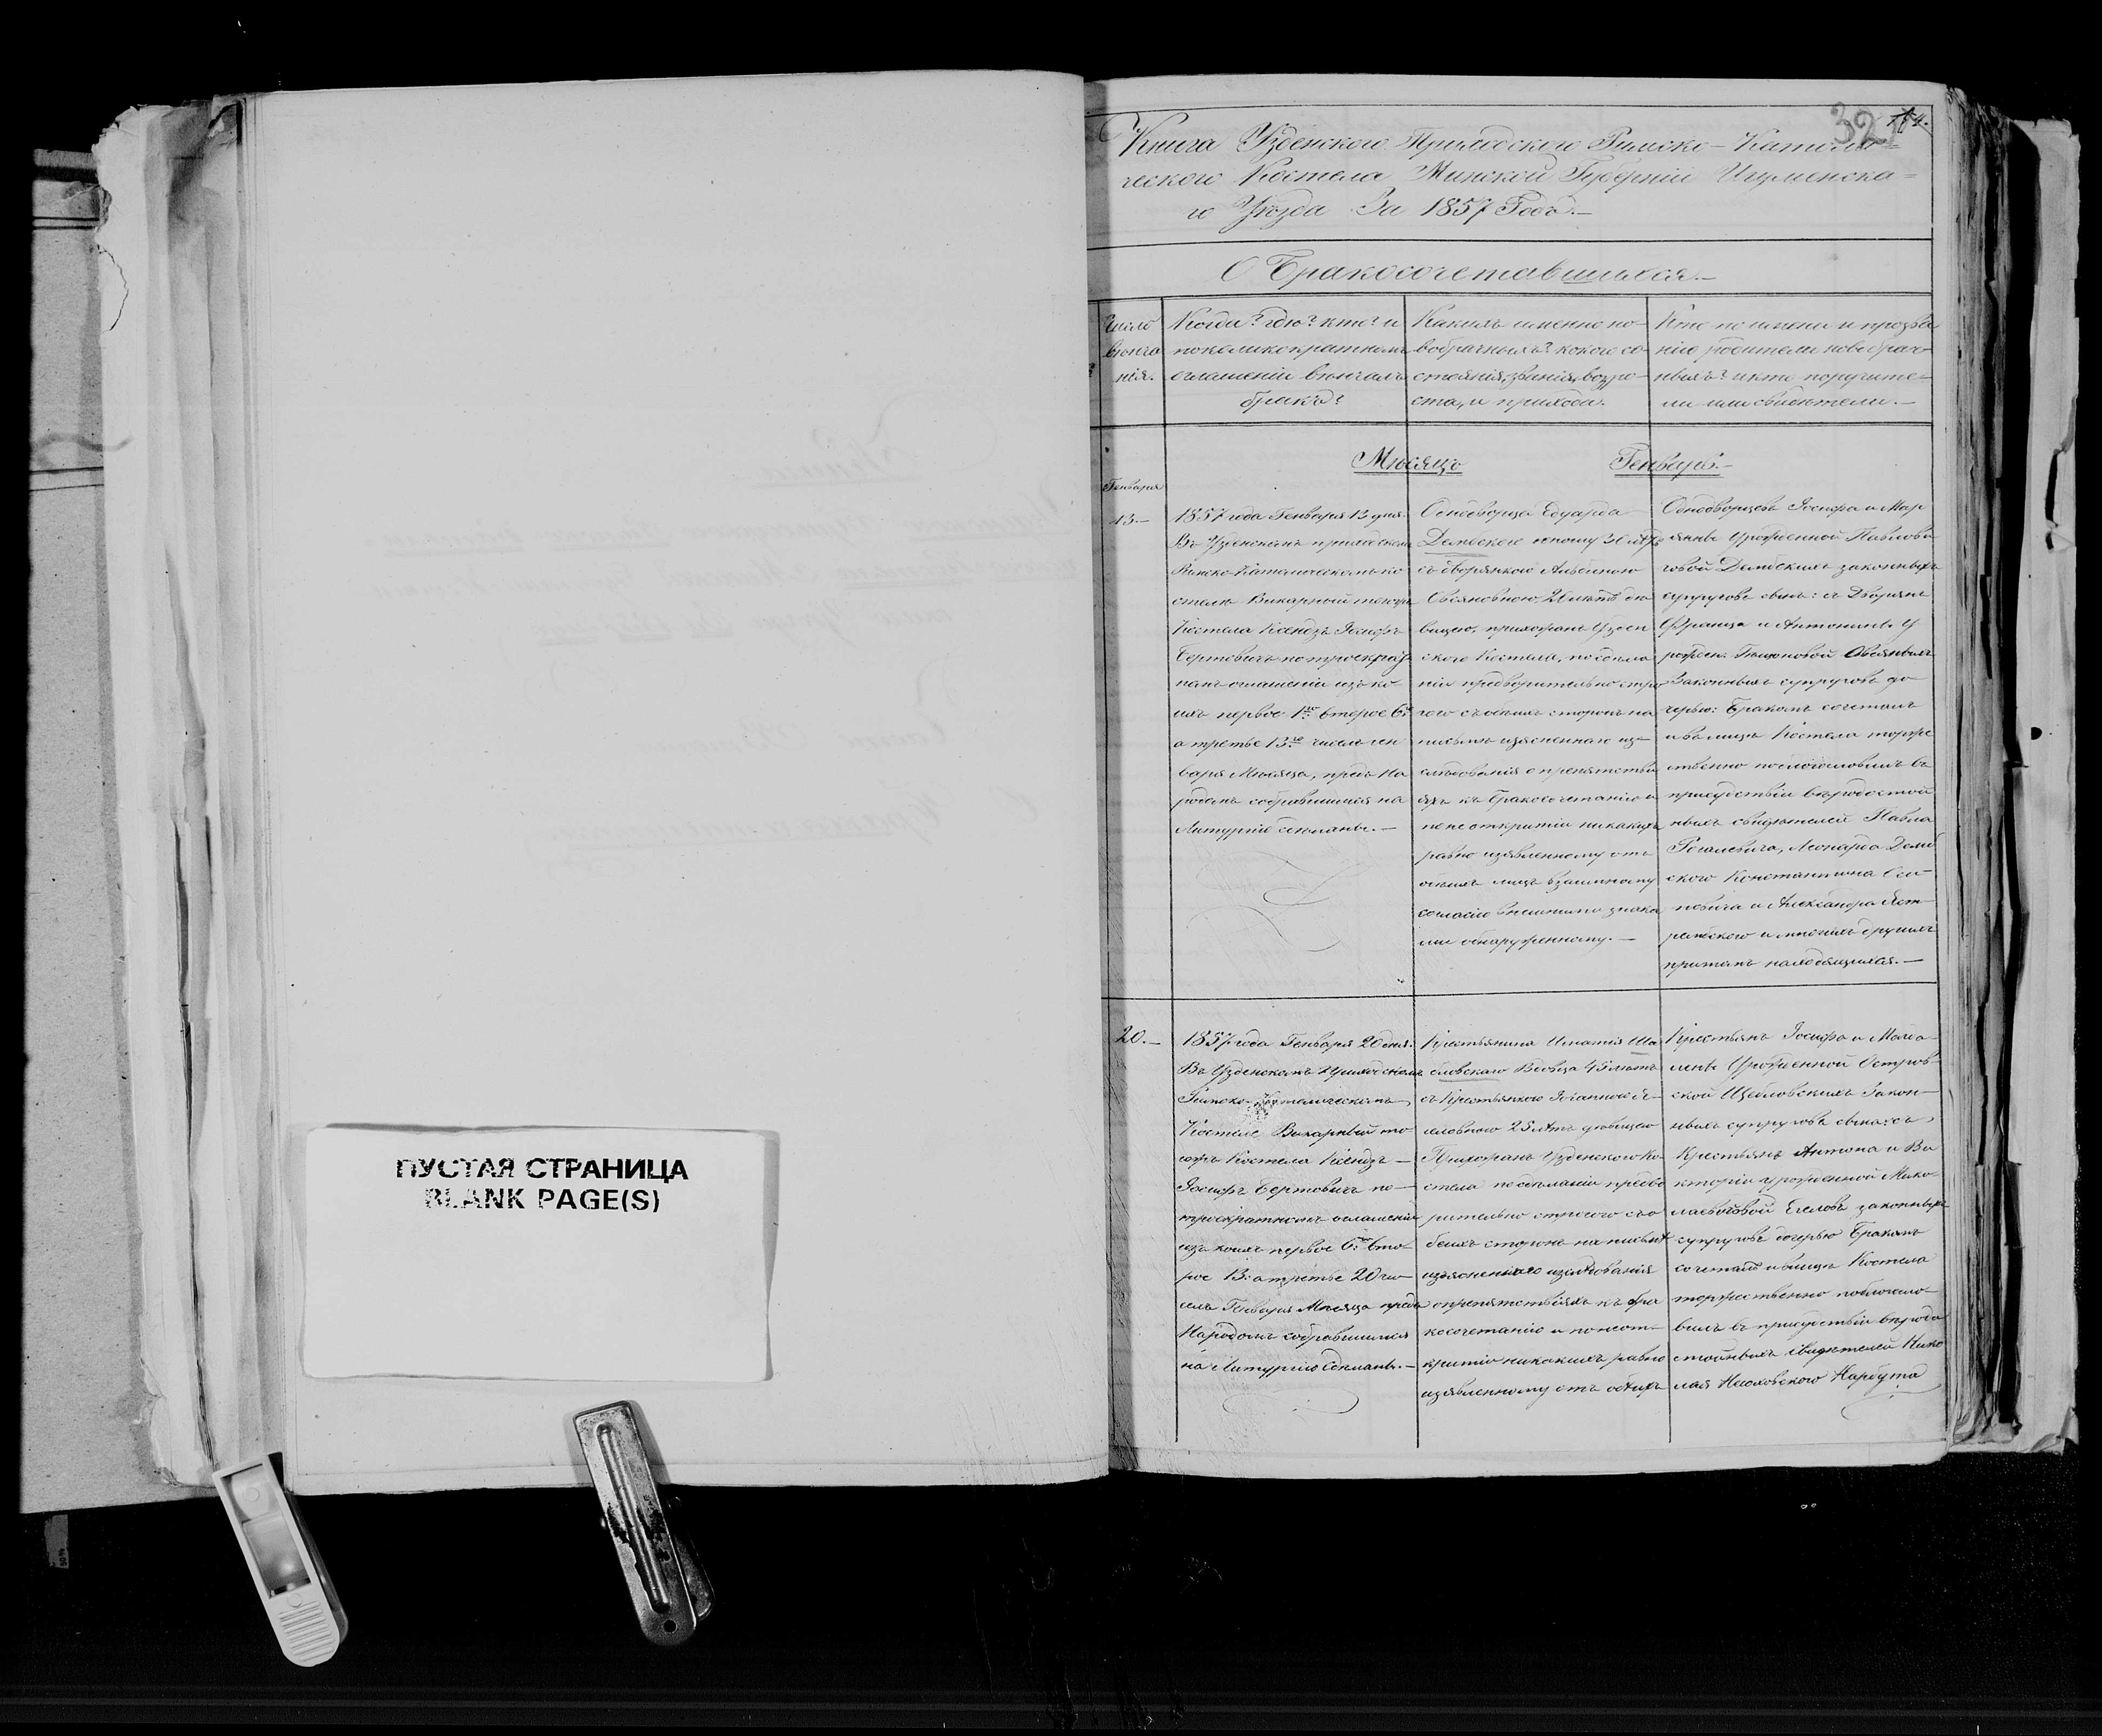 ПУСТАЯ СТРАНИЦА
BLANK PAGE(S)
32
Книга Узденского Приходского Римско-Католи=
ческого Костела Минской Губерніи Игуменска=
го Уѣзда За 1857 Годъ.—
О Бракосочетавшихся.—
Число
вѣнча
нія.
Когда? гдѣ? кто? и
по коликократномъ
оглашеніи вѣнчалъ
бракъ?
Какихъ именно но-
вобрачныхъ? какого со-
стоянія, званія, возра-
ста, и прихода.
Кто по имени и прозва
нію родители новобрач-
ныхъ? и кто поручите-
ли или свидѣтели.—
Мѣсяцъ Генварь.—
Генваря
13.—
1857 года Генваря 13 дня.
Въ Узденскомъ приходскомъ
Римско-Католическомъ ко
стелѣ Викарный тогожъ
Костела Ксендзъ Іосифъ
Бертовичъ по троекрат
номъ оглашеніи изъ ко-
ихъ первое 1го второе 6го
а третье 13го числъ Ген
варя Мѣсяца, предъ на
родомъ собравшимся на
Литургію сдѣланы.—
Однодворца Едуарда
Дембского юношу 30 лѣтъ
съ дворянкою
20 лѣтъ дѣ
вицею, прихожанъ Узден
ского Костела, по сдѣла
ніи предварительно стро
гого съ обѣихъ сторонъ на
письмѣ изясненнаго из-
слѣдованія о препятстві
яхъ къ бракосочетанію и
по не открытіи никакихъ
равно изявленному отъ
обѣихъ лицъ взаимному
согласію внешними знака
ми обнаруженному.—
Однодворцевъ Іосифа и Мар
іянны Урожденной Павлови
човой Дембскихъ законныхъ
супруговъ сынъ: съ Дворянъ
Франца и Антонины У
рожден. Овсяныхъ
Законныхъ супруговъ до
черью: Бракомъ сочеталъ
и въ лицѣ Костела торже
ственно поблогословилъ въ
присудствіи вѣродостой
ныхъ свидѣтелей Павла
Рогалевича, Леонарда Демб
ского Константина Оси-
повича и Александра
и многихъ другихъ
притомъ находящихся.—
20.—
1857 года Генваря 20 дня.
Въ Узденскомъ Приходскомъ
Римско-Католическомъ
Костелѣ Викарный то
гожъ Костела Ксендзъ—
Іосифъ Бертовичъ по—
троекратномъ оглашеніи
изъ коихъ первое 6го вто-
рое 13. а третье 20 чи-
слъ Генваря Мѣсяца предъ
Народомъ собравшимся
на Литургію Сдѣланы.—
Крестьянина Игнатія Ще
бловскаго Вдовца 45 лѣтъ
съ Крестьянкою Іоанною Ег-
еловною 25 лѣтъ дѣвицею
Прихожанъ Узденского Ко-
стела по сдѣланіи предва
рительно строгого съ о
беихъ сторонъ на письмѣ
изясненнаго изслѣдованія
о препятствіяхъ къ бра
косочетанію и по не от-
крытію никакихъ равно
изявленному отъ обѣихъ
Крестьянъ Іосифа и Магда
лены Урожденной Остров-
ской Щебловскихъ Закон-
ныхъ супруговъ сына: съ
Крестьянъ Антона и Ви
кторіи урожденной Нико-
лаевичовой Егеловъ законныхъ
супруговъ дочерью Бракомъ
сочеталъ и въ лицѣ Костела
торжественно поблогосло-
вилъ въ присудствіи вѣродо
стойныхъ свидѣтелей Нико
лая Нарбута